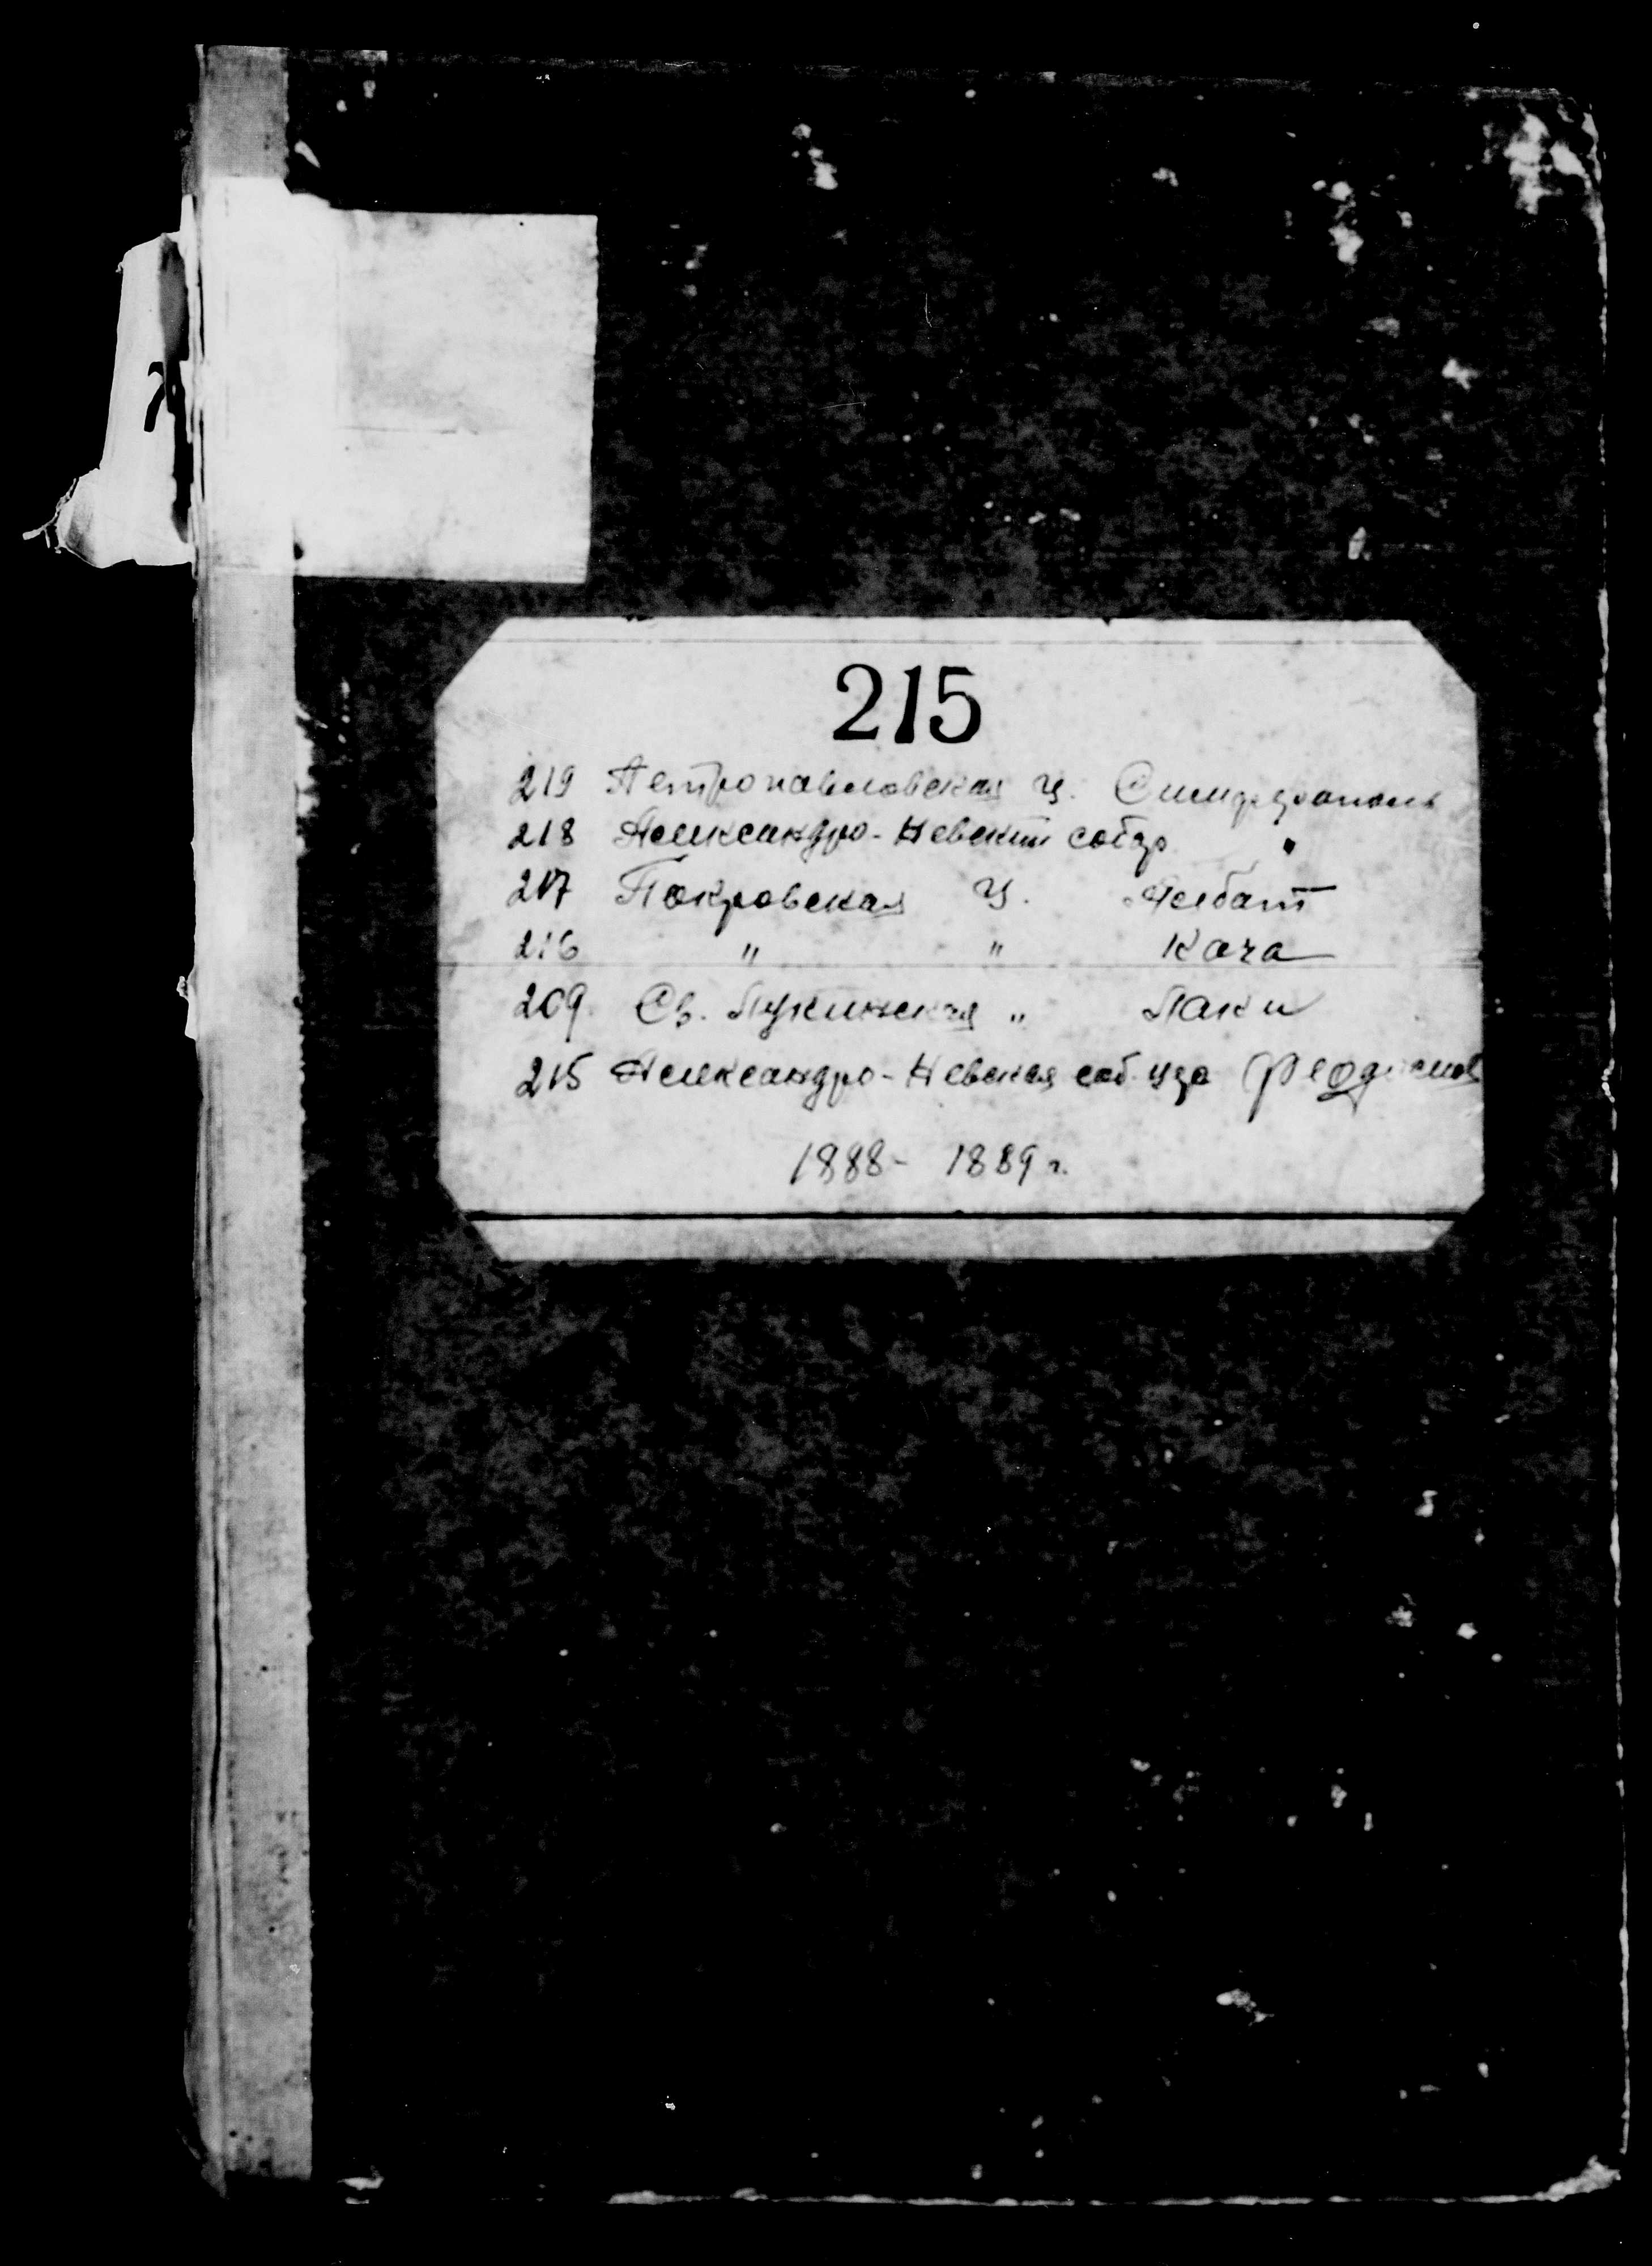 215
219 Петропавловская ц. Симферополь
218 Александро-Невский собор "
217 Покровская ц. Албат
216 " " Кача
209 Св. Лукинская " Лаки
215 Александро-Невская соб. Феодосия
1888- 1889 г.